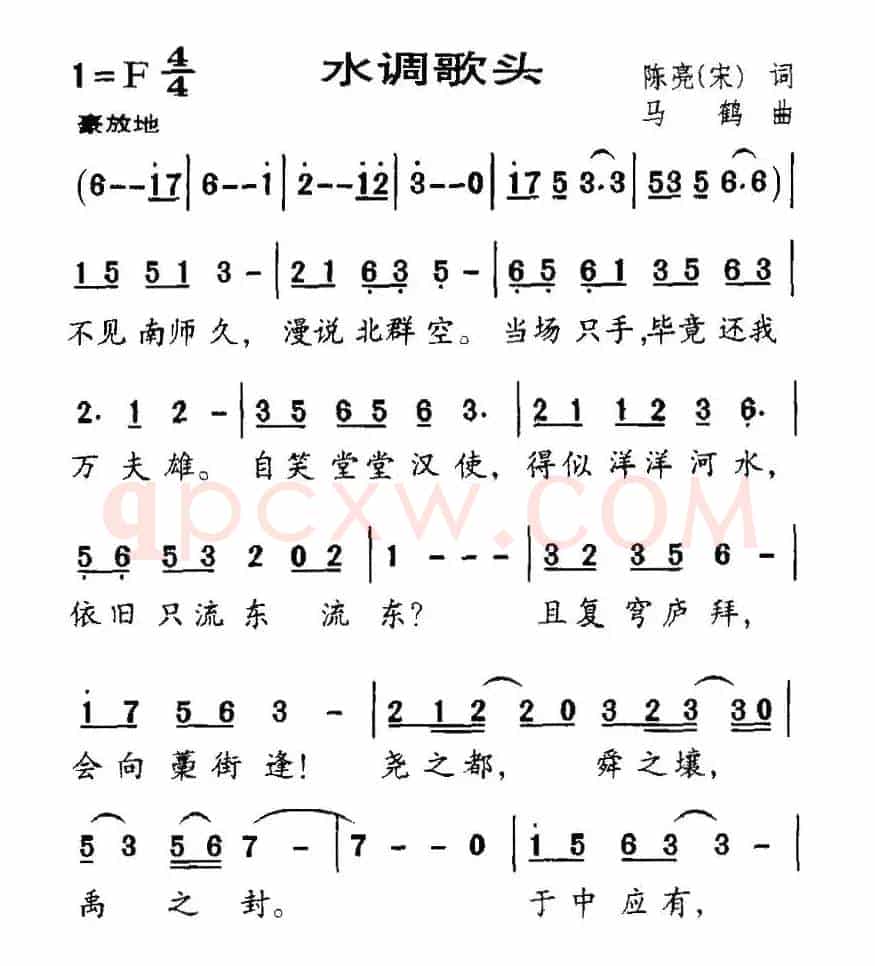 1=F 4/4 水调歌头 陈亮(宋) 词
豪放地 马鹤 曲
(6--i̇7|6--i̇|2̇--i̇2̇|3̇--0|i̇7 5 3·3|53 5 6·6)|
15 51 3-|21 6̣3̣ 5̣-|6̣5̣ 6̣1 35 63|
不见南师久，漫说北群空。当场只手,毕竟还我
2· 1 2-|35 65 6 3·|21 12 3 6̣·|
万夫雄。自笑堂堂汉使，得似洋洋河水，
5̣6̣ 53 2 02|1---|32 35 6-|
依旧只流东 流东？ 且复穹庐拜，
i̇7 56 3-|212 20 323 30|
会向藁街逢！ 尧之都， 舜之壤，
5 3 56 7-|7--0|i̇5 63 3-|
禹之封。 于中应有，
qpcxw.COM